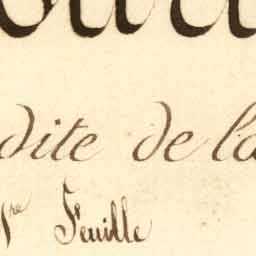 dite de la
1re Feuille